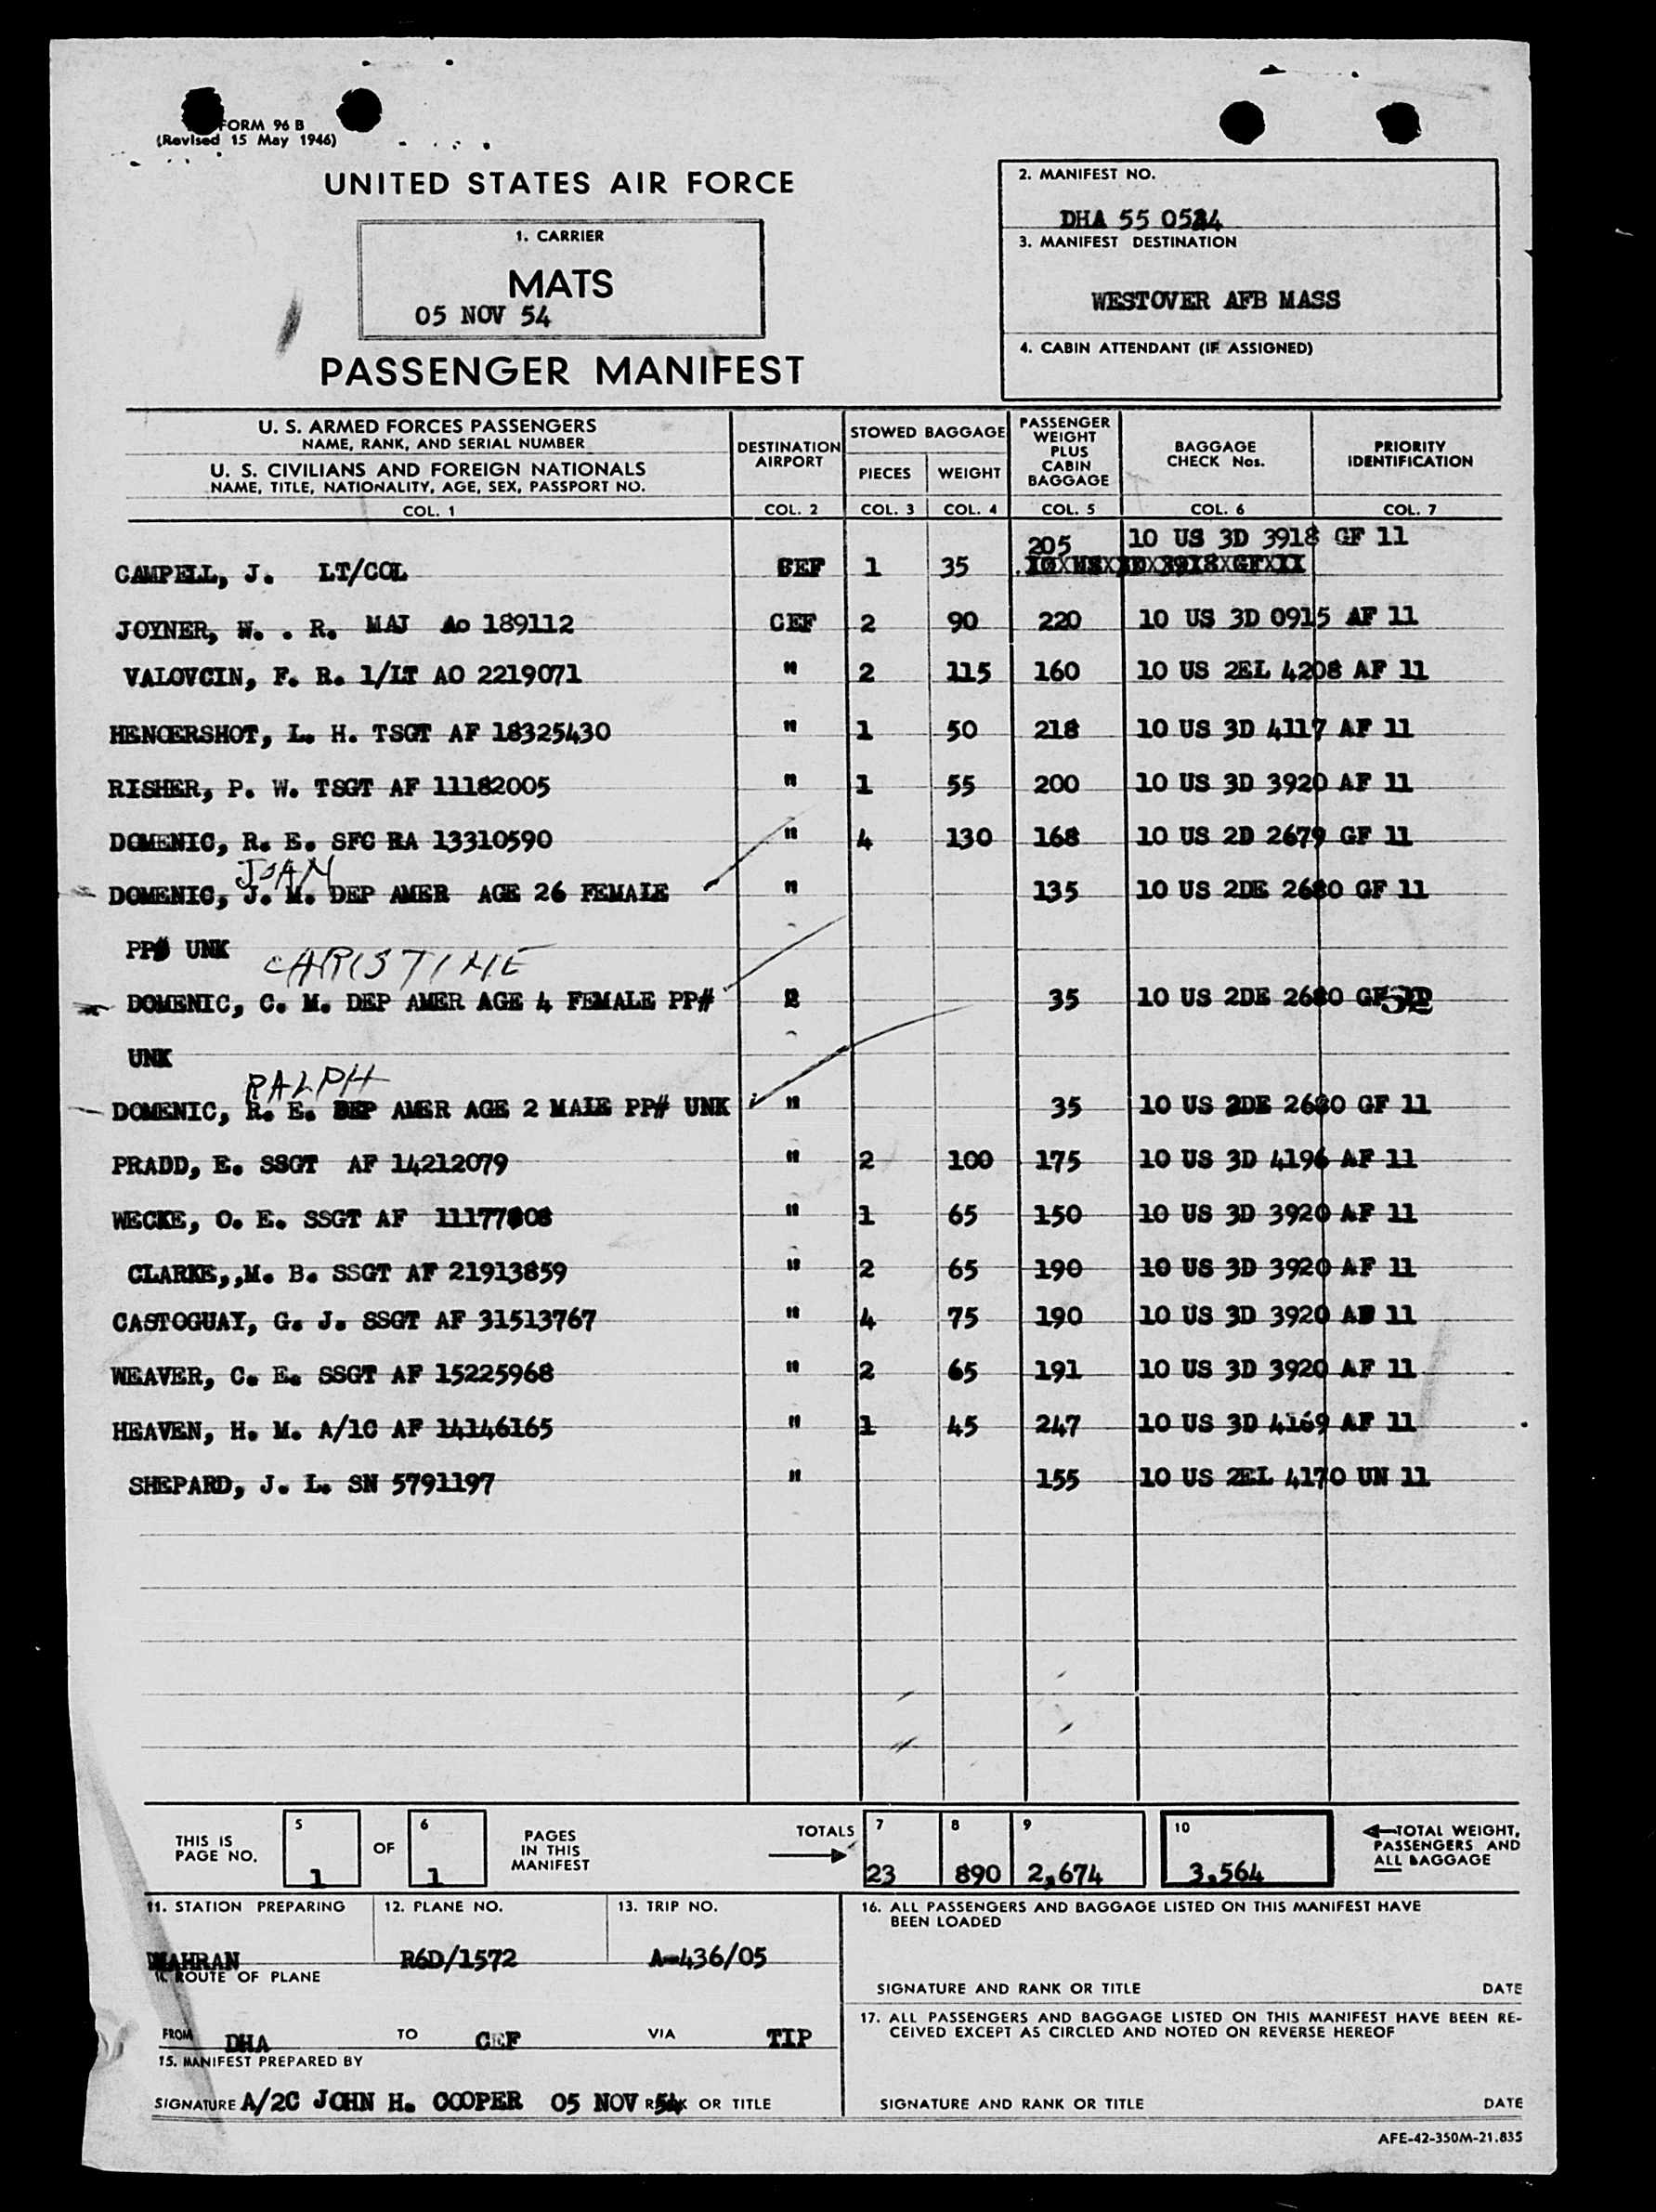 FORM 96 B
(Revised 15 May 1946)
UNITED STATES AIR FORCE
1. CARRIER
MATS
05 NOV 54
PASSENGER MANIFEST
2. MANIFEST NO.
DHA 55
3. MANIFEST DESTINATION
WESTOVER AFB MASS
4. CABIN ATTENDANT (IF ASSIGNED)
U. S. ARMED FORCES PASSENGERS
NAME, RANK, AND SERIAL NUMBER
U. S. CIVILIANS AND FOREIGN NATIONALS
NAME, TITLE, NATIONALITY, AGE, SEX, PASSPORT NO.
COL. 1
DESTINATION AIRPORT
COL. 2
STOWED BAGGAGE
PIECES WEIGHT
COL. 3 COL. 4
PASSENGER WEIGHT PLUS CABIN BAGGAGE
COL. 5
BAGGAGE CHECK Nos.
COL. 6
PRIORITY IDENTIFICATION
COL. 7
205 10 US 3D 3918 GF 11
CAMPELL, J. LT/COL CEF 1 35
JOYNER, W. . R. MAJ Ao 189112 CEF 2 90 220 10 US 3D 0915 AF 11
VALOVCIN, F. R. 1/LT AO 2219071 " 2 115 160 10 US 2EL 4208 AF 11
HENCERSHOT, L. H. TSGT AF 18325430 " 1 50 218 10 US 3D 4117 AF 11
RISHER, P. W. TSGT AF 11182005 " 1 55 200 10 US 3D 3920 AF 11
DOMENIC, R. E. SFC RA 13310590 " 4 130 168 10 US 2D 2679 GF 11
JOAN
DOMENIC, J. M. DEP AMER AGE 26 FEMALE " 135 10 US 2DE 2680 GF 11
PP# UNK
CHRISTINE
DOMENIC, C. M. DEP AMER AGE 4 FEMALE PP# 35 10 US 2DE 2680
UNK
RALPH
DOMENIC, R. E. DEP AMER AGE 2 MALE PP# UNK " 35 10 US 2DE 2680 GF 11
PRADD, E. SSGT AF 14212079 " 2 100 175 10 US 3D 4196 AF 11
WECKE, O. E. SSGT AF " 1 65 150 10 US 3D 3920 AF 11
CLARKE,,M. B. SSGT AF 21913859 " 2 65 190 10 US 3D 3920 AF 11
CASTOGUAY, G. J. SSGT AF 31513767 " 4 75 190 10 US 3D 3920 11
WEAVER, C. E. SSGT AF 15225968 " 2 65 191 10 US 3D 3920 AF 11
HEAVEN, H. M. A/1C AF 14146165 " 1 45 247 10 US 3D 4169 AF 11
SHEPARD, J. L. SN 5791197 " 155 10 US 2EL 4170 UN 11
THIS IS PAGE NO. 5 1 OF 6 1 PAGES IN THIS MANIFEST
TOTALS 7 23 8 890 9 2,674 10 3,564
TOTAL WEIGHT, PASSENGERS AND ALL BAGGAGE
11. STATION PREPARING 12. PLANE NO. 13. TRIP NO.
R6D/1572 A-436/05
ROUTE OF PLANE
FROM DHA TO CEF VIA TIP
15. MANIFEST PREPARED BY
SIGNATURE A/2C JOHN H. COOPER 05 NOV 54 RANK OR TITLE
16. ALL PASSENGERS AND BAGGAGE LISTED ON THIS MANIFEST HAVE BEEN LOADED
SIGNATURE AND RANK OR TITLE DATE
17. ALL PASSENGERS AND BAGGAGE LISTED ON THIS MANIFEST HAVE BEEN RE-
CEIVED EXCEPT AS CIRCLED AND NOTED ON REVERSE HEREOF
SIGNATURE AND RANK OR TITLE DATE
AFE-42-350M-21.835